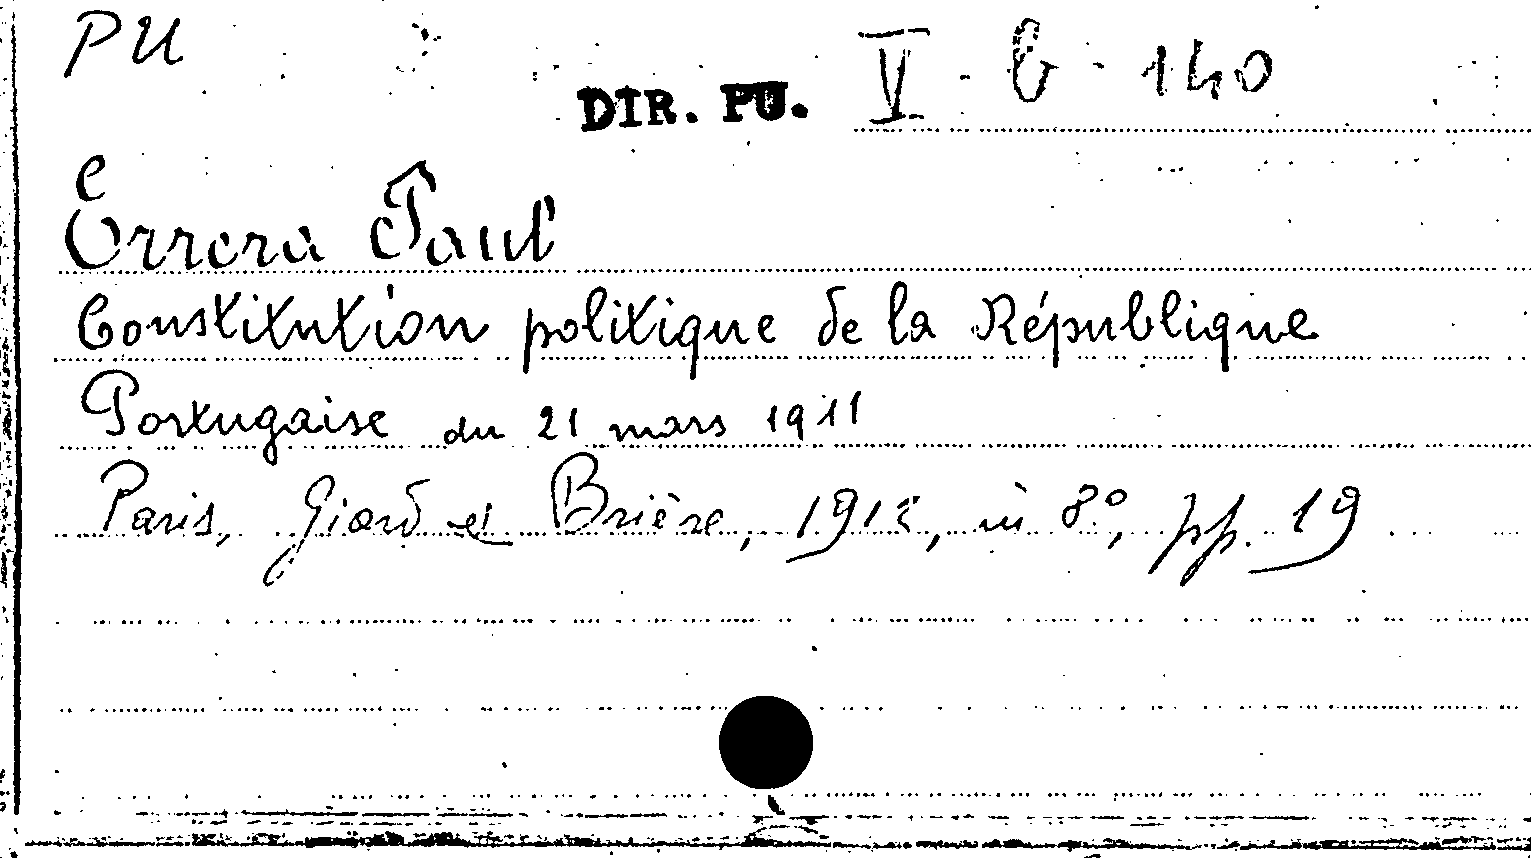 PU
DIR. PU. V - b - 140
Errera Paul
Constitution politique de la République
Portugaise du 21 mars 1911
Paris, Giard et Brière, 1912, in 8°, pp. 19